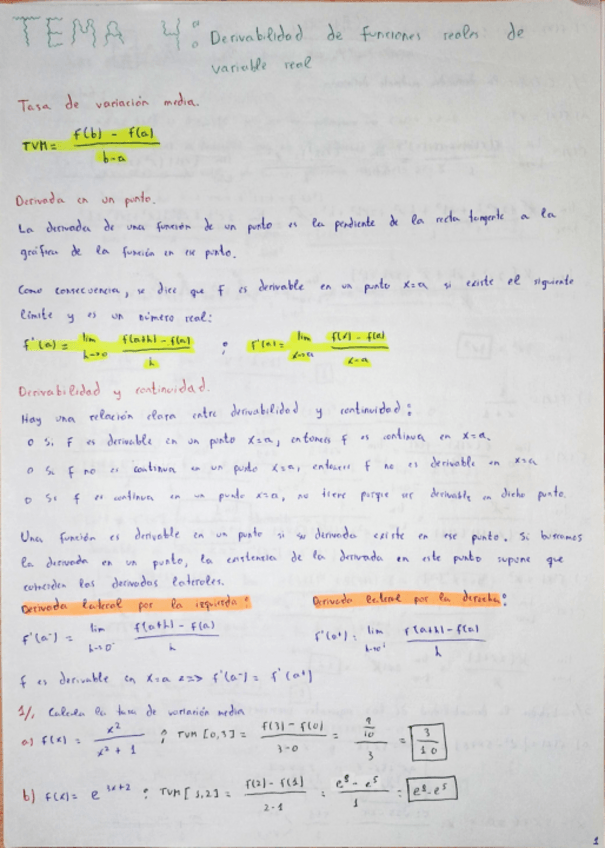 TEMA 4: Derivabilidad de funciones reales de
variable real
Tasa de variación media.
TVM = (f(b) - f(a)) / (b-a)
Derivada en un punto.
La derivada de una función de un punto es la pendiente de la recta tangente a la
gráfica de la función en ese punto.
Como consecuencia, se dice que f es derivable en un punto x=a si existe el siguiente
límite y es un número real:
f'(a) = lim h→0 (f(a+h) - f(a)) / h ; f'(a) = lim x→a (f(x) - f(a)) / (x-a)
Derivabilidad y continuidad.
Hay una relación clara entre derivabilidad y continuidad:
o Si f es derivable en un punto x=a, entonces f es continua en x=a.
o Si f no es continua en un punto x=a, entonces f no es derivable en x=a
o Si f es continua en un punto x=a, no tiene porque ser derivable en dicho punto.
Una función es derivable en un punto si su derivada existe en ese punto. Si buscamos
la derivada en un punto, la existencia de la derivada en este punto supone que
coinciden las derivadas laterales.
Derivada lateral por la izquierda: Derivada lateral por la derecha:
f'(a⁻) = lim h→0⁻ (f(a+h) - f(a)) / h f'(a⁺) = lim h→0⁺ (f(a+h) - f(a)) / h
f es derivable en x=a <=> f'(a⁻) = f'(a⁺)
1/. Calcula la tasa de variación media
a) f(x) = x² / (x²+1) ; TVM [0,3] = (f(3) - f(0)) / (3-0) = (9/10) / 3 = 3/10
b) f(x) = ; TVM [1,2] = (f(2) - f(1)) / (2-1) = (e⁸ - e⁵) / 1 = e⁸ - e⁵
1